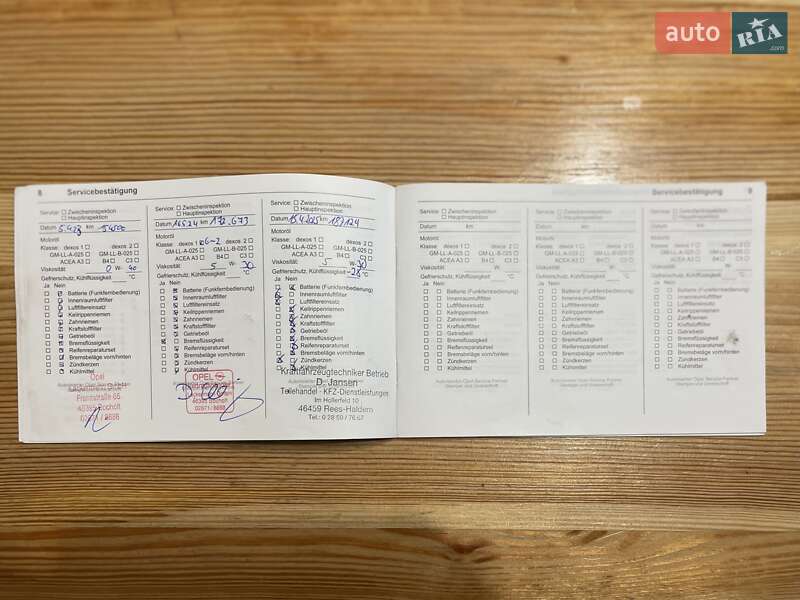 auto RIA .com
8 Servicebestätigung
Service: Zwischeninspektion
Hauptinspektion
Datum km
Motoröl
Klasse: dexos 1 dexos 2
GM-LL-A-025 GM-LL-B-025
ACEA A3 B4 C3
Viskosität 0 W- 40
Gefrierschutz, Kühlflüssigkeit °C
Ja Nein
Batterie (Funkfernbedienung)
Innenraumluftfilter
Luftfiltereinsatz
Keilrippenriemen
Zahnriemen
Kraftstofffilter
Getriebeöl
Bremsflüssigkeit
Reifenreparaturset
Bremsbeläge vorn/hinten
Zündkerzen
Kühlmittel
Opel
46395 Bocholt
02871 / 8688
Service: Zwischeninspektion
Hauptinspektion
Datum 16.5.24 km 172.673
Motoröl
Klasse: dexos 1 dexos 2
GM-LL-A-025 GM-LL-B-025
ACEA A3 B4 C3
Viskosität 5 W- 30
Gefrierschutz, Kühlflüssigkeit °C
Ja Nein
Batterie (Funkfernbedienung)
Innenraumluftfilter
Luftfiltereinsatz
Keilrippenriemen
Zahnriemen
Kraftstofffilter
Getriebeöl
Bremsflüssigkeit
Reifenreparaturset
Bremsbeläge vorn/hinten
Zündkerzen
Kühlmittel
OPEL
46395 Bocholt
02871 / 8688
Service: Zwischeninspektion
Hauptinspektion
Datum km 187124
Motoröl
Klasse: dexos 1 dexos 2
GM-LL-A-025 GM-LL-B-025
ACEA A3 B4 C3
Viskosität 5 W- 30
Gefrierschutz, Kühlflüssigkeit -28 °C
Ja Nein
Batterie (Funkfernbedienung)
Innenraumluftfilter
Luftfiltereinsatz
Keilrippenriemen
Zahnriemen
Kraftstofffilter
Getriebeöl
Bremsflüssigkeit
Reifenreparaturset
Bremsbeläge vorn/hinten
Zündkerzen
Kühlmittel
Kraftfahrzeugtechniker Betrieb
D. Jansen
Teilehandel - KFZ-Dienstleistungen
Im Hollerfeld 10
46459 Rees-Haldern
Tel.: 0 28 50 / 76 67
Servicebestätigung 9
Service: Zwischeninspektion
Hauptinspektion
Datum km
Motoröl
Klasse: dexos 1 dexos 2
GM-LL-A-025 GM-LL-B-025
ACEA A3 B4 C3
Viskosität W-
Gefrierschutz, Kühlflüssigkeit °C
Ja Nein
Batterie (Funkfernbedienung)
Innenraumluftfilter
Luftfiltereinsatz
Keilrippenriemen
Zahnriemen
Kraftstofffilter
Getriebeöl
Bremsflüssigkeit
Reifenreparaturset
Bremsbeläge vorn/hinten
Zündkerzen
Kühlmittel
Autorisierter Opel Service Partner
Stempel und Unterschrift
Service: Zwischeninspektion
Hauptinspektion
Datum km
Motoröl
Klasse: dexos 1 dexos 2
GM-LL-A-025 GM-LL-B-025
ACEA A3 B4 C3
Viskosität W-
Gefrierschutz, Kühlflüssigkeit °C
Ja Nein
Batterie (Funkfernbedienung)
Innenraumluftfilter
Luftfiltereinsatz
Keilrippenriemen
Zahnriemen
Kraftstofffilter
Getriebeöl
Bremsflüssigkeit
Reifenreparaturset
Bremsbeläge vorn/hinten
Zündkerzen
Kühlmittel
Autorisierter Opel Service Partner
Stempel und Unterschrift
Service: Zwischeninspektion
Hauptinspektion
Datum km
Motoröl
Klasse: dexos 1 dexos 2
GM-LL-A-025 GM-LL-B-025
ACEA A3 B4 C3
Viskosität W-
Gefrierschutz, Kühlflüssigkeit °C
Ja Nein
Batterie (Funkfernbedienung)
Innenraumluftfilter
Luftfiltereinsatz
Keilrippenriemen
Zahnriemen
Kraftstofffilter
Getriebeöl
Bremsflüssigkeit
Reifenreparaturset
Bremsbeläge vorn/hinten
Zündkerzen
Kühlmittel
Autorisierter Opel Service Partner
Stempel und Unterschrift